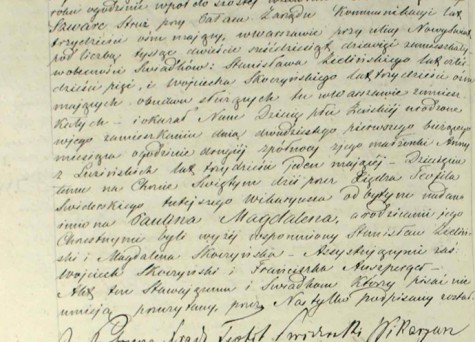 roku ogodzinie wpół do szóstej
Szwarc Stróż przy Pałacu Zarządu Kommunikacji lat
trzydzieści ośm mający, wWarszawie przy ulicy Nowy Świat
pod liczbą tysiąc dwieście sześćdziesiąt dziewięć zamieszkały
wobecności Świadków: Stanisława Zielińskiego lat czter
dzieści pięć, i Wojciecha Skoczyńskiego lat trzydzieści ośm
mających obudwu służących tu wWarszawie zamiesz
kałych – iokazał Nam Dziecię płci Żeńskiej urodzone
wjego zamieszkaniu dnia dwudziestego pierwszego bieżącego
miesiąca ogodzinie drugiej spółnocy zjego małżonki Anny
z lat trzydzieści jeden mającej – Dziecięciu
temu na Chrzcie Świętym dziś przez Xiędza Teofila
Świderskiego tutejszego Wikaryusza odbytym nadane
imiona Paulina Magdalena, arodzicami jego
Chrzestnymi byli wyżej wspomniony Stanisław Zieliń
ski i Magdalena Skoczyńska – Assystującymi zaś
Wojciech Skoczyński i Franciszka
Akt ten Stawającemu i Świadkom którzy pisać nie
umieją przeczytany, przez Nas tylko podpisany został
X Teofil Świderski Wikaryusz